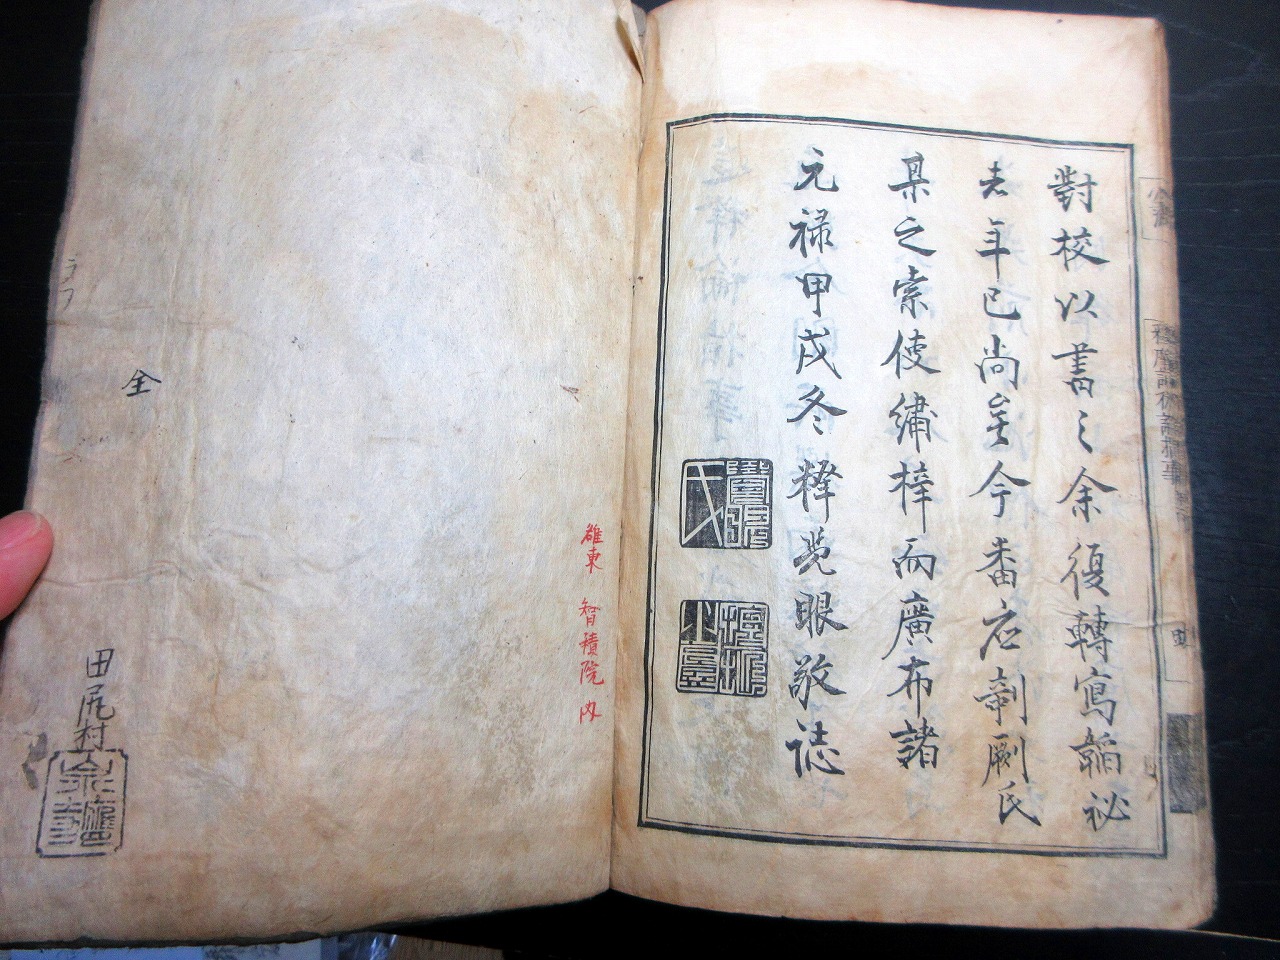 對校以書之余復轉寫韜祕
者年已尚矣今番应剞劂氏
某之索使繡梓而廣布諸
元禄甲戌冬釋覚眼敬誌
雒東 智積院 内
全
田尻村